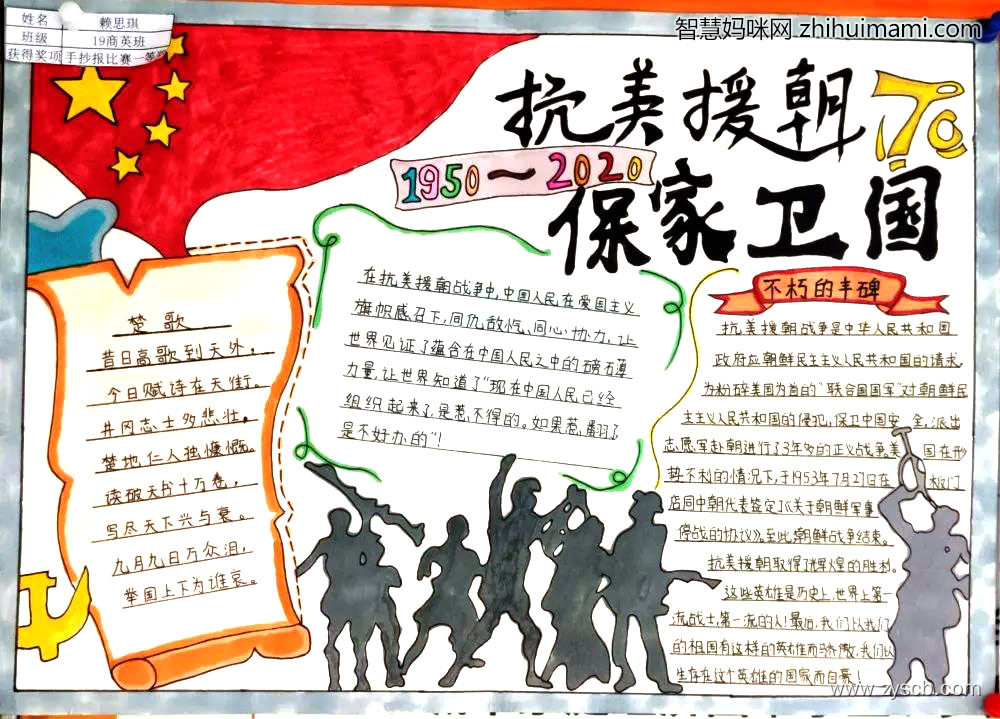 姓名 赖思琪
班级 19商英班
获得奖项 手抄报比赛一等奖
智慧妈咪网 zhihuimami.com
抗美援朝 70
1950~2020
保家卫国
楚歌
昔日高歌到天外，
今日赋诗在天街。
井冈志士多悲壮，
楚地仁人独慷慨。
读破天书十万卷，
写尽天下兴与衰。
九月九日万众泪，
举国上下为谁哀。
在抗美援朝战争中，中国人民在爱国主义
旗帜感召下，同仇敌忾、同心协力，让
世界见证了蕴含在中国人民之中的磅礴
力量，让世界知道了“现在中国人民已经
组织起来了是惹不得的。如果惹翻了
是不好办的”！
不朽的丰碑
抗美援朝战争是中华人民共和国
政府应朝鲜民主主义人民共和国的请求，
为粉碎美国为首的“联合国国军”对朝鲜民
主主义人民共和国的侵犯，保卫中国安全，派出
志愿军赴朝进行了3年多的正义战争，美国在形
势不利的情况下，于1953年7月27日在板门
店同中朝代表签定了《关于朝鲜军事
停战的协议》，至此，朝鲜战争结束。
抗美援朝取得了辉煌的胜利。
这些英雄是历史上，世界上第一
流战士，第一流的人！最后，我们从我们
的祖国有这样的英雄而骄傲，我们以
生存在这个英雄的国家而自豪！
www.zyscb.com